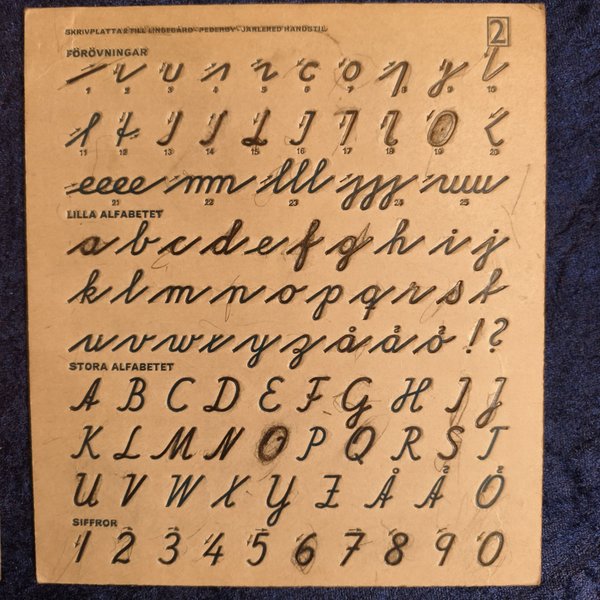 SKRIVPLATTA 2 TILL LINDEGÅRD - PEDERBY - JARLERED HANDSTIL
2
FÖRÖVNINGAR
1 2 3 4 5 6 7 8 9 10
11 12 13 14 15 16 17 18 19 20
eeee mm lll jjj uuu
21 22 23 24 25
LILLA ALFABETET
a b c d e f g h i j
k l m n o p q r s t
u v w x y z å ä ö ! ?
STORA ALFABETET
A B C D E F G H I J
K L M N O P Q R S T
U V W X Y Z Å Ä Ö
SIFFROR
1 2 3 4 5 6 7 8 9 0